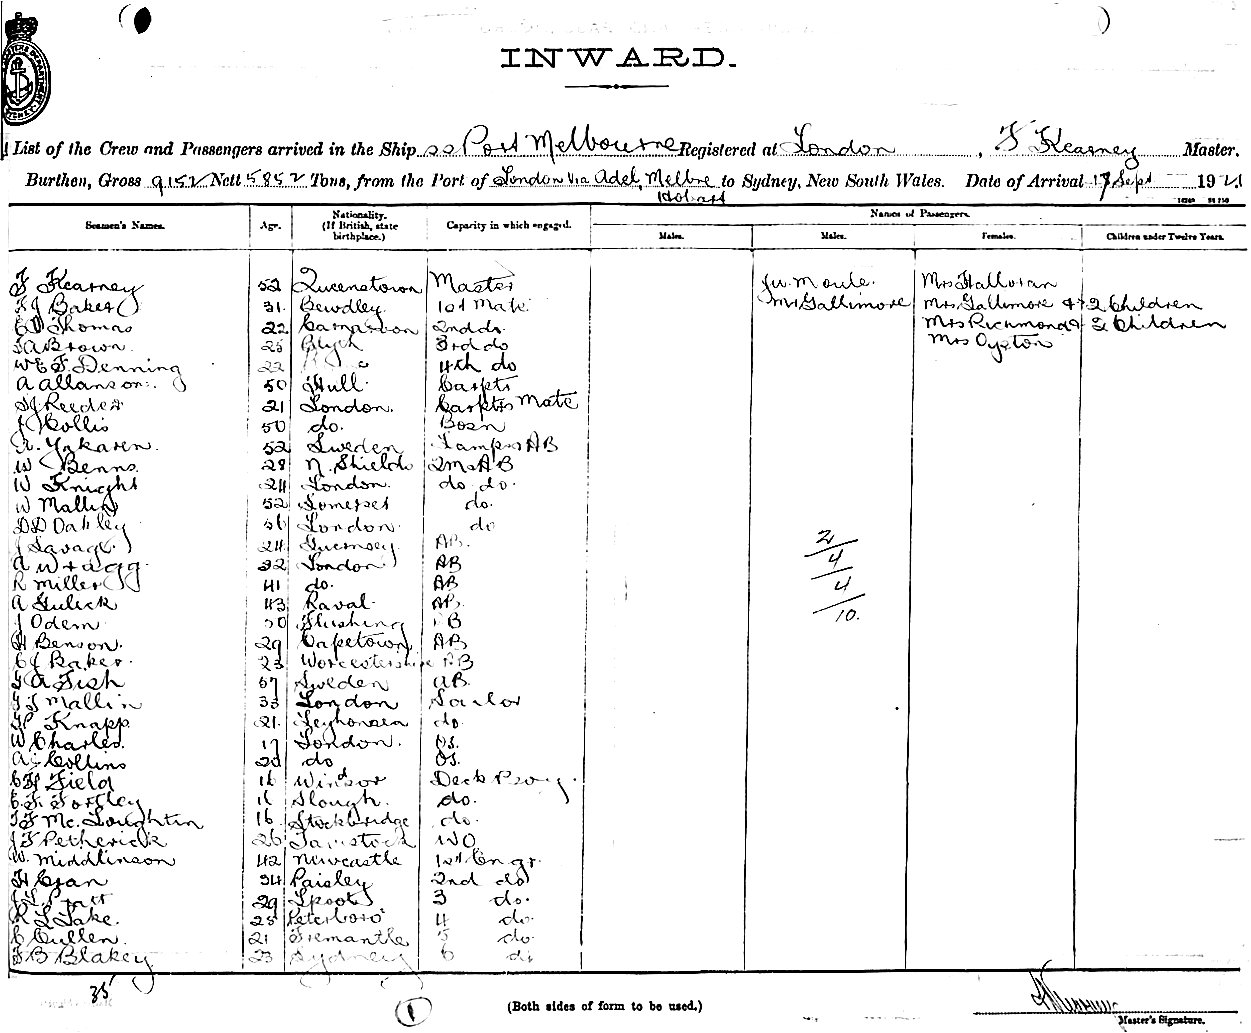 INWARD.
List of the Crew and Passengers arrived in the Ship ss Port Melbourne Registered at London, F Kearney Master.
Burthen, Gross 9152 Nett 5852 Tons, from the Port of London Via Adel, Melbne to Sydney, New South Wales. Date of Arrival 17 Sept 1921
Hobart
Names of Passengers.
Seamen's Names. Age. Nationality. (If British, state birthplace.) Capacity in which engaged. Males. Males. Females. Children under Twelve Years.
F Kearney 52 Queenstown Master J W Moule. Mrs Halloran
Baker 31 Bewdley 1st Mate Mr Gallimore Mrs Gallimore & 2 Children
Thomas 22 Carnarvon 2nd do. Mrs Richmond & 2 Children
Brown 25 Blyth 3rd do Mrs Oyston
W E F Denning 22 " 4th do
A Allanson 50 Hull Carptr
Reeder 21 London. Carptrs Mate
J Collis 50 do. Bosn
52 Sweden Lamps AB
W Benns. 28 N. Shields 2 Ms AB
W Knight 24 London. do. do.
W Mallin 52 Somerset do.
D D Oakley 56 London. do
J Savage 24 Guernsey AB. 2
A Wragg 22 London AB 4
R Miller 41 do. AB 4
A Gulick 43 Raval AB. 10.
J Odem 30 Flushing AB
H Benson. 29 Capetown AB
C J Baker. 23 Worcestershire AB
Fish 57 Sweden AB.
Mallin 33 London Sailor
Knapp 21. do.
W Charles. 17 London. OS.
A Collins do OS.
Field 16 Windsor Deck Boy.
16 Slough. do.
Mc. Loughlin 16 Stockbridge do.
J F Petherick 26 Tavistock WO
W. Middlinson 42 Newcastle 1st Engr.
H Cran 34 Paisley 2nd do
Pratt 29 L'pool 3 do.
R L Lake. 25 Peterboro' 4 do.
C Cullen. 21 Fremantle 5 do.
F B Blakey 23 Sydney 6 do
35
1
(Both sides of form to be used.)
Master's Signature.